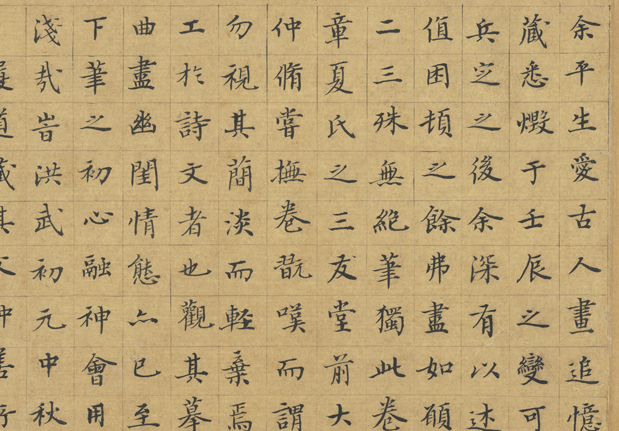 余平生愛古人畫追憶
藏悉燬于壬辰之變可
兵定之後余深有以述
值困頓之餘弗盡如願
二三殊無絕筆獨此卷
章夏氏之三友堂前大
仲脩嘗撫卷翫嘆而謂
勿視其簡淡而輕棄焉
工於詩文者也觀其摹
曲盡幽閨情態亦已至
下筆之初心融神會用
淺哉旹洪武初元中秋